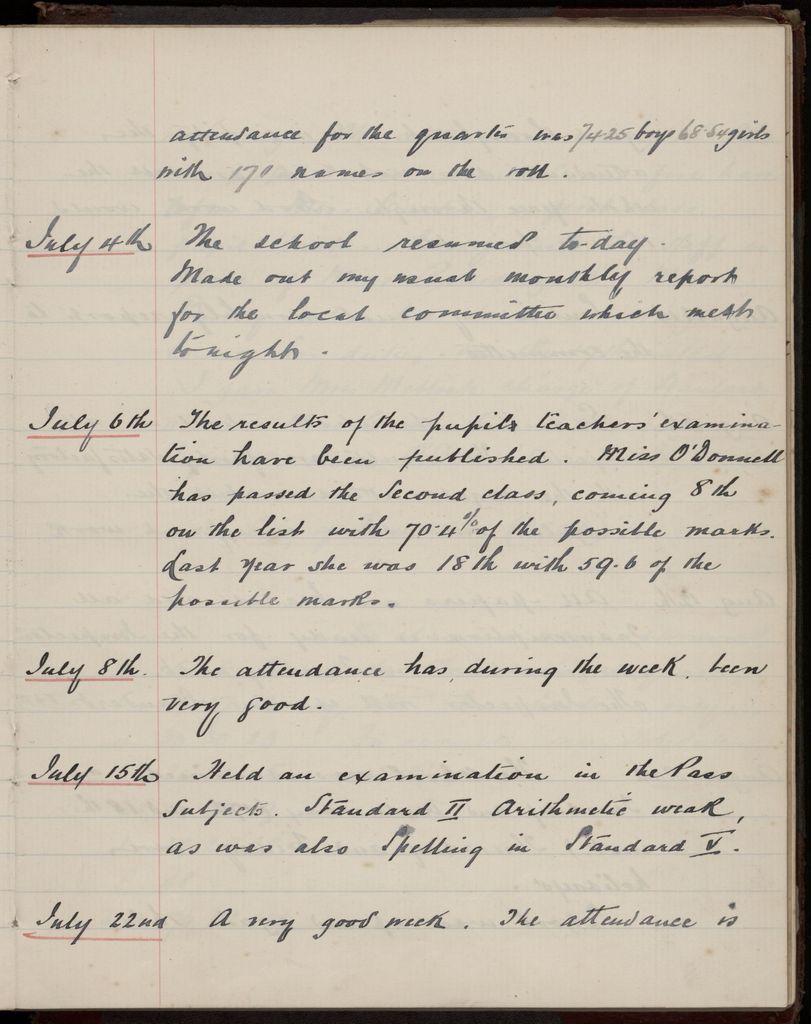 attendance for the quarter was 74·25 boys 68·54 girls
with 170 names on the roll.
July 4th The school resumed to-day.
Made out my usual monthly report
for the local committee which meets
tonight.
July 6th The results of the pupil teachers' examina-
tion have been published. Miss O'Donnell
has passed the Second class, coming 8th
on the list with 70·4% of the possible marks.
Last year she was 18th with 59·6 of the
possible marks.
July 8th. The attendance has, during the week, been
very good.
July 15th Held an examination in the Pass
Subjects. Standard II Arithmetic weak,
as was also Spelling in Standard V.
July 22nd A very good week. The attendance is